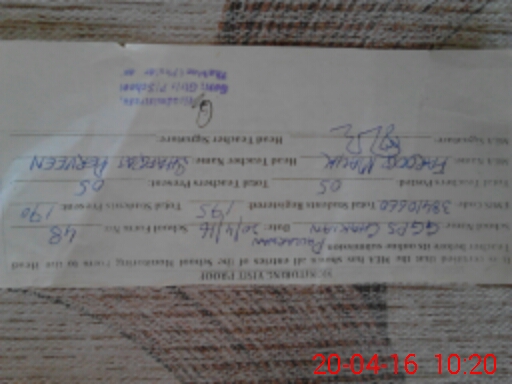 MONITORING VISIT PROOF
It is certified that the MEA has shown all entries of the School Monitoring Form to the Head
Teacher before its online submission
School Name: GGPS CHAKIAN Date: 20/4/16 School Form No: 48
EMIS Code: 38410660 Total Students Registered: 195 Total Students Present: 190
Total Teachers Posted: 05 Total Teachers Present: 05
MEA Name: FAROOQ MALIK Head Teacher Name: SHAFQAT PERVEEN
MEA Signature: Head Teacher Signature:
Headmistress
Govt. Girls P/School
20-04-16 10:20